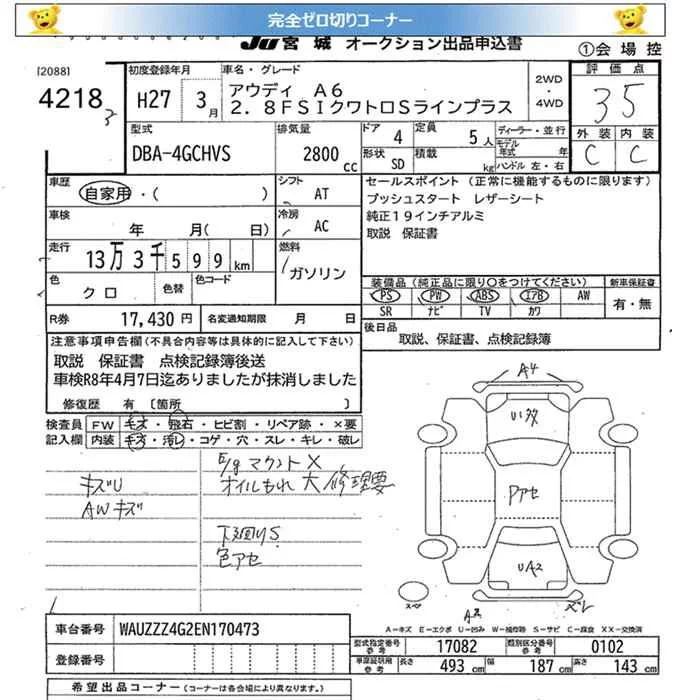 完全ゼロ切りコーナー
JU 宮城 オークション出品申込書
①会場控
[2088]
4218
初度登録年月
H27 3月
車名・グレード
アウディ A6
2.8FSIクワトロSラインプラス
2WD
・
4WD
評価点
3 5
外装 内装
C C
型式
DBA-4GCHVS
排気量
2800 cc
ドア 4
定員 5人
形状 SD
積載 kg
ディーラー・並行
モデル年式 年
ハンドル 左・右
車歴
自家用・( )
シフト
AT
セールスポイント (正常に機能するものに限ります)
プッシュスタート レザーシート
純正19インチアルミ
取説 保証書
車検
年 月( 日)
冷房
AC
走行
13万3千599km
燃料
ガソリン
色
クロ
色替
色コード
装備品(純正品に限り○をつけてください)
新車保証書
PS PW ABS エアB AW
SR ナビ TV カワ
有・無
R券 17,430円
名変通知期限 月 日
後日品
取説、保証書、点検記録簿
注意事項申告欄(不具合内容等は具体的に記入して下さい)
取説 保証書 点検記録簿後送
車検R8年4月7日迄ありましたが抹消しました
修復歴 有〔箇所 〕
検査員記入欄
FW キズ・飛石・ヒビ割・リペア跡・×要
内装 キズ・汚レ・コゲ・穴・スレ・キレ・破レ
キズU
AWキズ
E/gマウント×
オイルもれ大 修理要
下廻りS
色アセ
A4
Pアセ
UA2
スペア
A2
ズレ
A-キズ E-エクボ U-凹み W-補修跡 S-サビ C-腐食 XX-交換済
車台番号 WAUZZZ4G2EN170473
登録番号
型式指定番号 参考 17082
類別区分番号 参考 0102
車庫証明用 参考
長さ 493 cm
幅 187 cm
高さ 143 cm
希望出品コーナー(コーナーは各会場により異なります。)